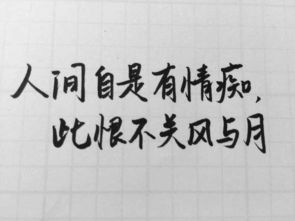 人间自是有情痴,
此恨不关风与月